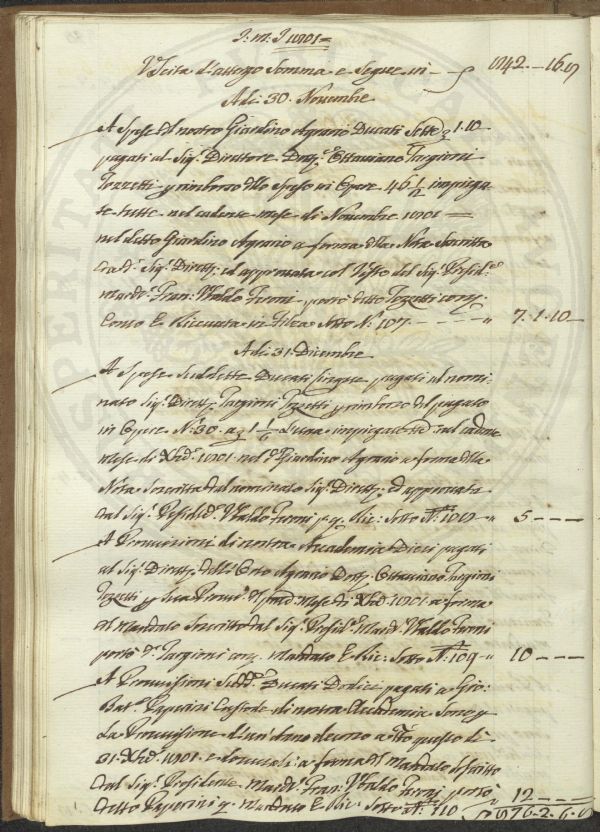 J: M: J 1801=
Uscita d'attergo Somma e Segue in - 842.--16.8
A dì 30. Novembre
A Spese del nostro Giardino Agrario Ducati Sette 1.10
pagati al Sig.r Direttore Dott.r Ottaviano Targioni
Tozzetti p rimborso dello Speso in Opere 46 1/2 impiega
te tutte nel cadente mese di Novembre 1801 =
nel detto Giardino Agrario a forma della Nota Soscritta
da d.o Sig.r Dirett.e, ed approvata col Visto del Sig.r Presid.e
March.e Fran.o Ubaldo Feroni, portò detto Tozzetti con.ti
Conto E Ricevuta in Filza Sotto N.o 107. - - - - " 7.1.10
A dì 31. Dicembre
A Spese Suddette Ducati Cinque pagati al nomi-
nato Sig.r Dirett.e Targioni Tozzetti p rimborso del pagato
in Opere N.o 30. a 1 1/6 l'una impiegate nel cadente
mese di Xbre 1801 nel d.o Giardino Agrario a forma della
Nota Soscritta dal nominato Sig.r Dirett.e, ed approvata
dal Sig.r Presid.e Ubaldo Feroni Ric: Sotto N.o 108 " 5 - - -
A Provvisioni di nostra Accademia Dieci pagati
al Sig.r Dirett.e dell'Orto Agrario Dott.r Ottaviano Targioni
Tozzetti p Sua Provv.e del mese di Xbre 1801 a forma
del Mandato Soscritto dal Sig.r Presid.e March.e Ubaldo Feroni
portò d.o Targioni con.ti Mandato E Ric: Sotto N.o 109 " 10 - - -
A Provvisioni Sudd.e Ducati Dodici pagati a Gio:
Bat.a Paperini Custode di nostra Accademia Sono p
La Provvisione d'un'Anno decorso a tt.o questo dì
31. Xbre 1801. e a forma del Mandato Soscritto
dal Sig.r Presidente March.e Fran.o Ubaldo Feroni, portò
detto Paperini Mandato E Ric: Sotto N.o 110 " 12 - - -
876.2.6.8